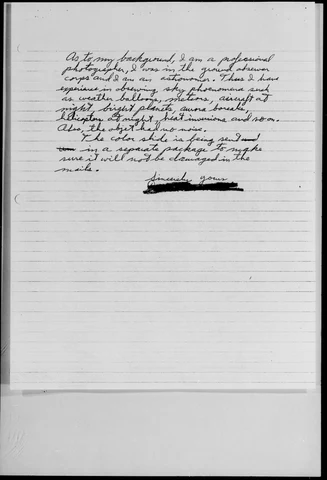 As to my background, I am a professional
photographer, I was in the ground observer
corps and I am an astronomer. Thus I have
experience in observing sky phenomena such
as weather balloons, meteors, aircraft at
night, bright planets, aurora borealis,
helicopters at night, heat inversions and so on.
Also, the object had no noise.
The color slide is being sent
in a separate package to make
sure it will not be damaged in the
mails.
Sincerely yours